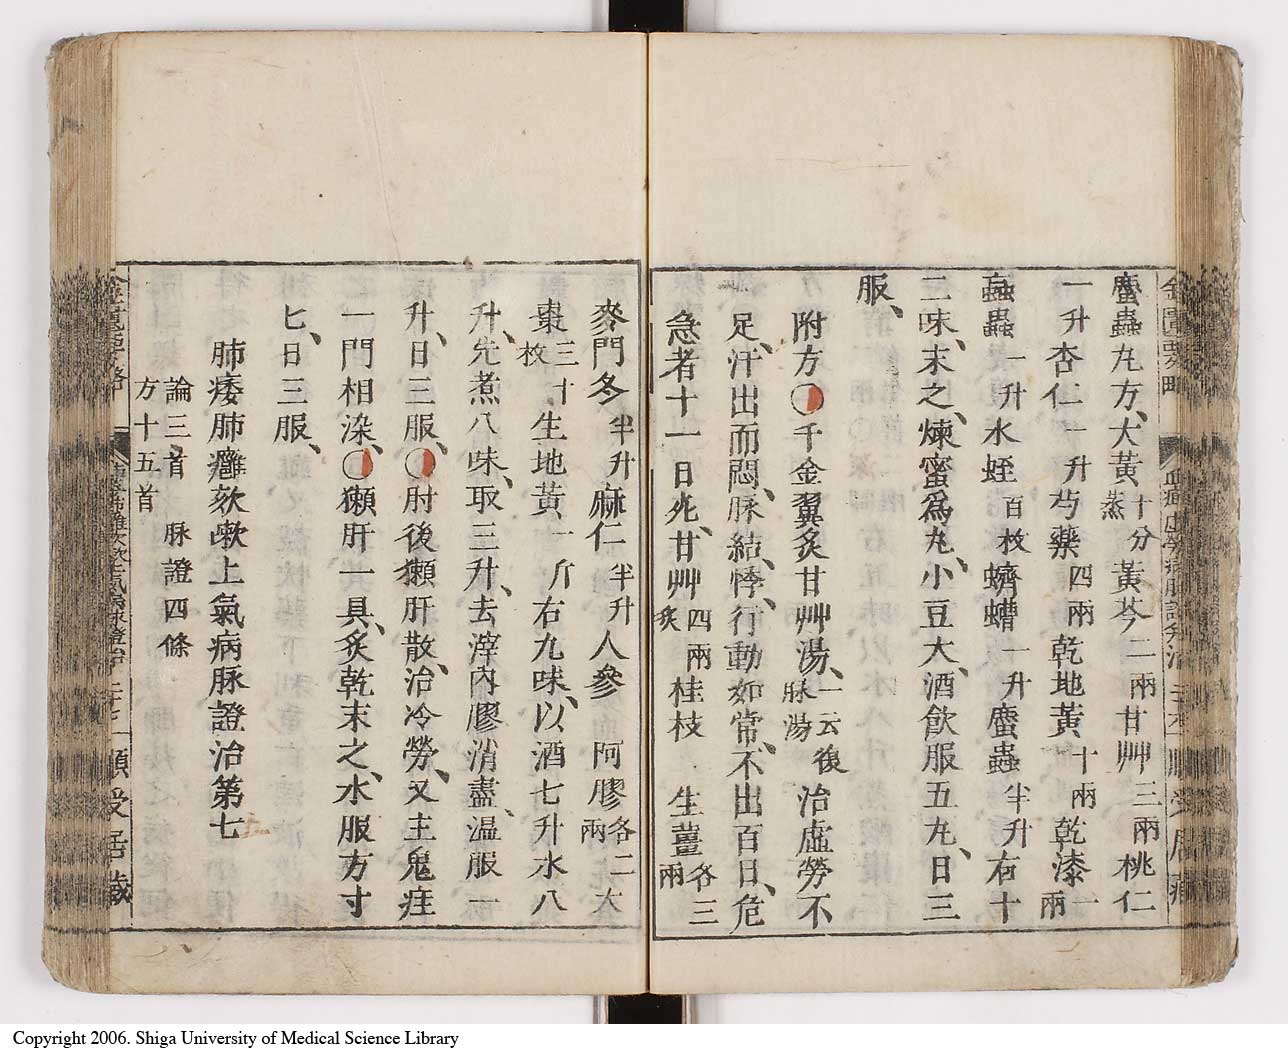 䗪蟲丸方、大黃十分蒸黃芩二兩甘艸三兩桃仁
一升杏仁一升芍藥四兩乾地黃十兩乾漆一兩
蝱蟲一升水蛭百枚蠐螬一升䗪蟲半升右十
二味、末之、煉蜜爲丸、小豆大、酒飮服五丸、日三
服、
附方〇千金翼炙甘艸湯、一云後脉湯治虛勞不
足、汗出而悶、脉結、悸、行動如常、不出百日、危
急者十一日死、甘艸四兩炙桂枝 生薑各三兩
麥門冬半升麻仁半升人參 阿膠各二兩大
棗三十枚生地黃一斤右九味、以酒七升水八
升、先煮八味、取三升、去滓、內膠消盡、溫服一
升、日三服、〇肘後獺肝散、治冷勞、又主鬼疰
一門相染、〇獺肝一具、炙乾末之、水服方寸
匕、日三服、
肺痿肺癰欬嗽上氣病脉證治第七
論三首 脉證四條
方十五首
順受居藏
Copyright 2006. Shiga University of Medical Science Library